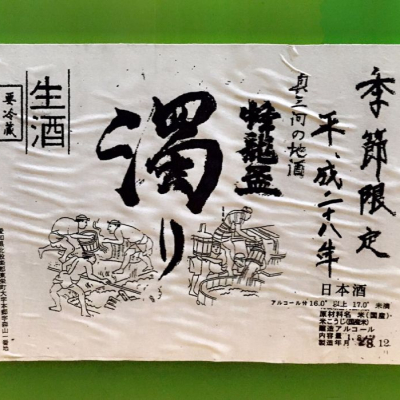 季節限定
平成二十八年
奥三河の地酒
蜂龍盃
濁り
生酒
要冷蔵
日本酒
アルコール分16.0°以上17.0°未満
原材料名 米(国産)・
米こうじ(国産米)
醸造アルコール
内容量
製造年月 28.12